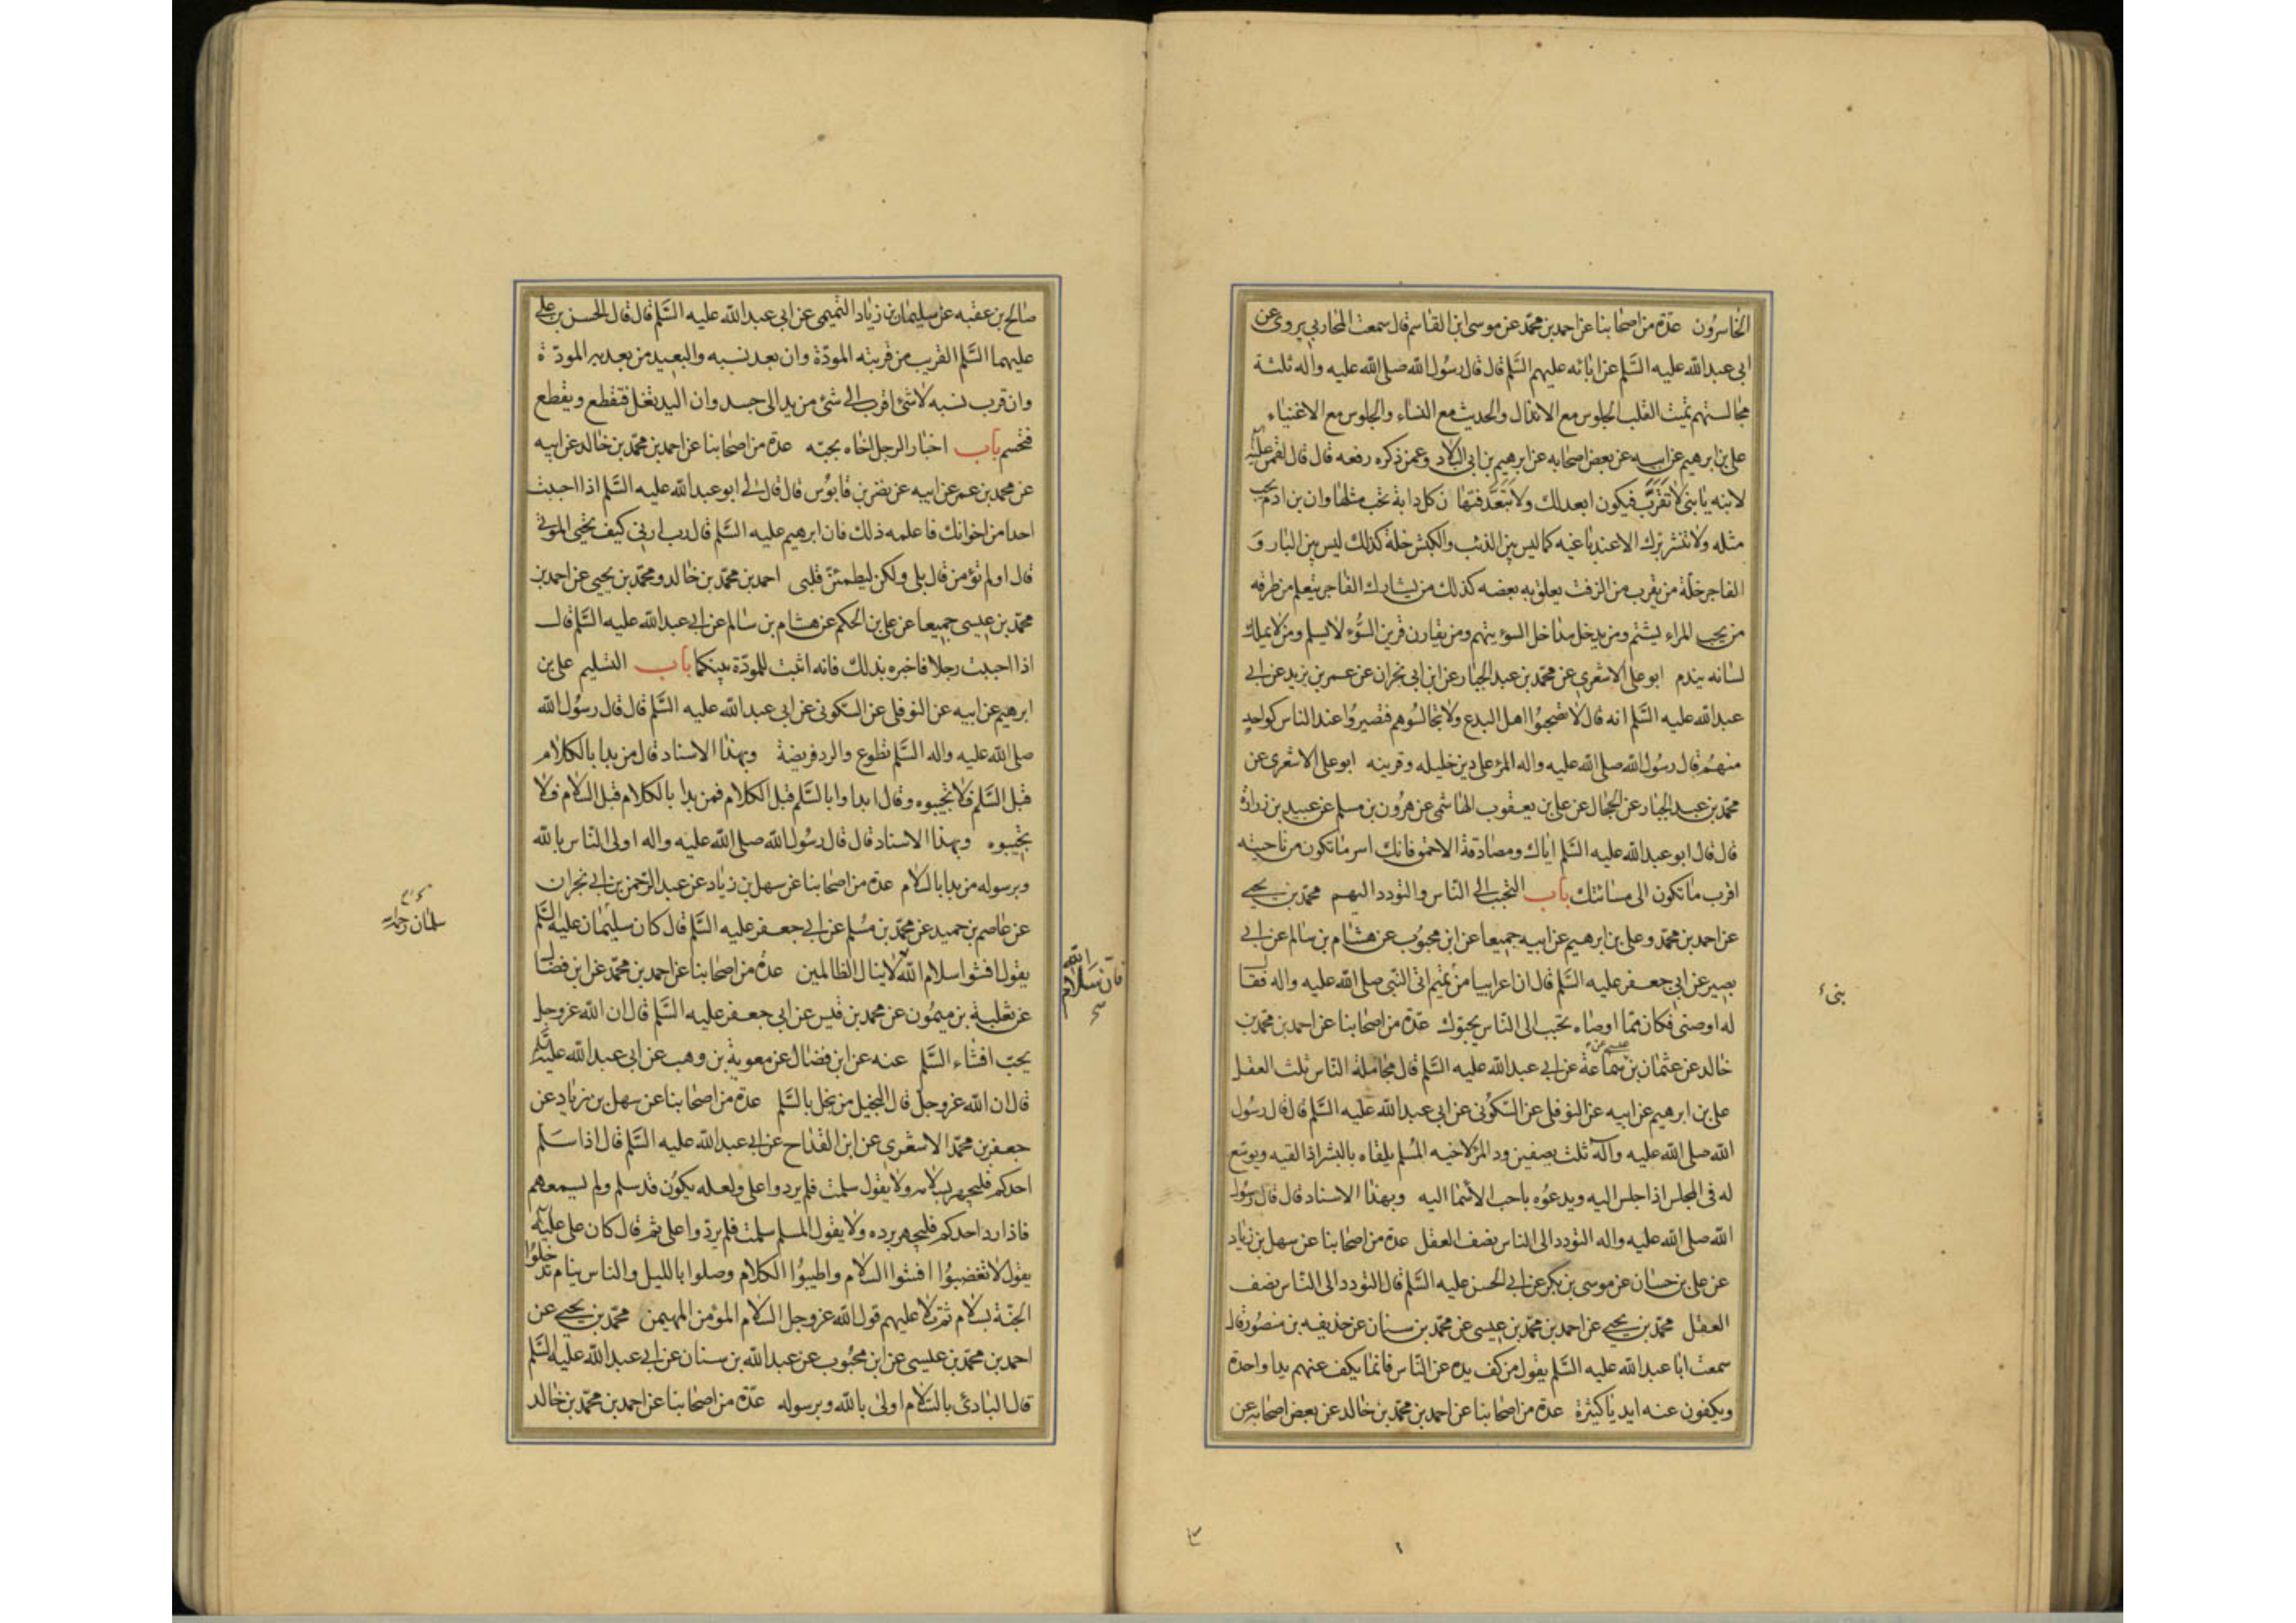 الخاسرون عدة من اصحابنا عن احمد بن محمد عن موسى ابن القاسم قال سمعت المحاربي يروى عن
ابى عبد الله عليه السلم عن ابائه عليهم السلم قال قال رسول الله صلى الله عليه واله ثلثة
مجالستهم تميت القلب الجلوس مع الانذال والحديث مع النساء والجلوس مع الاغنياء
على بن ابرهيم عن ابيه عن بعض اصحابه عن ابرهيم بن ابى البلاد وعمن ذكره رفعه قال قال لقمن عليه
لابنه يا بنى لا تقرب فيكون ابعد لك ولا تبعد فتهان كل دابة تحب مثلها وان بن ادم يحب
مثله ولا تنشر بزك الا عند باغيه كما ليس بين الذئب والكبش خلة كذلك ليس بين البار و
الفاجر خلة من يقرب من الزفت يعلق به بعضه كذلك من يشارك الفاجر يتعلم من طرقه
من يحب المراء يشتم ومن يدخل مداخل السوء يتهم ومن يقارن قرين السوء لا يسلم ومن لا يملك
لسانه يندم ابو على الاشعرى عن محمد بن عبد الجبار عن ابن ابى نجران عن عمر بن يزيد عن ابى
عبد الله عليه السلم انه قال لا تصحبوا اهل البدع ولا تجالسوهم فتصيروا عند الناس كواحد
منهم قال رسول الله صلى الله عليه واله المرء على دين خليله وقرينه ابو على الاشعرى عن
محمد بن عبد الجبار عن الحجال عن على بن يعقوب الهاشمى عن هرون بن مسلم عن عبيد بن زرارة
قال قال ابو عبد الله عليه السلم اياك ومصادقة الاحمق فانك اسر ما تكون من ناحيته
اقرب ما تكون الى مسائتك باب التحبب الى الناس والتودد اليهم محمد بن يحيى
عن احمد بن محمد وعلى بن ابرهيم عن ابيه جميعا عن ابن محبوب عن هشام بن سالم عن ابى
بصير عن ابى جعفر عليه السلم قال ان اعرابيا من تميم اتى النبى صلى الله عليه واله فقال
بنى
له اوصنى فكان مما اوصاه تحبب الى الناس يحبوك عدة من اصحابنا عن احمد بن محمد بن
خالد عن عثمان بن عيسى عن سماعة عن ابى عبد الله عليه السلم قال مجاملة الناس ثلث العقل
على بن ابرهيم عن ابيه عن النوفلى عن السكونى عن ابى عبد الله عليه السلم قال قال رسول
الله صلى الله عليه واله ثلث يصفين ود المرء لاخيه المسلم يلقاه بالبشر اذا لقيه ويوسع
له فى المجلس اذا جلس اليه ويدعوه باحب الاسما اليه وبهذا الاسناد قال قال رسول
الله صلى الله عليه واله التودد الى الناس نصف العقل عدة من اصحابنا عن سهل بن زياد
عن على بن حسان عن موسى بن بكر عن ابى الحسن عليه السلم قال التودد الى الناس نصف
العقل محمد بن يحيى عن احمد بن محمد بن عيسى عن محمد بن سنان عن حذيفه بن منصور قال
سمعت ابا عبد الله عليه السلم يقول من كف يده عن الناس فانما يكف عنهم يدا واحدة
ويكفون عنه ايديا كثيرة عدة من اصحابنا عن احمد بن محمد بن خالد عن بعض اصحابه عن
صالح بن عقبه عن سليمان بن زياد التميمى عن ابى عبد الله عليه السلم قال قال الحسن بن على
عليهما السلم القريب من قربته المودة وان بعد نسبه والبعيد من بعدته المودة
وان قرب نسبه لا شئ اقرب الى شئ من يد الى جسد وان اليد تغل فتقطع ويقطع
فتحسم باب اخبار الرجل اخاه بحبه عدة من اصحابنا عن احمد بن محمد بن خالد عن ابيه
عن محمد بن عمر عن ابيه عن نضر بن قابوس قال قال لى ابو عبد الله عليه السلم اذا احببت
احدا من اخوانك فاعلمه ذلك فان ابرهيم عليه السلم قال رب ارنى كيف تحيى الموتى
قال اولم تؤمن قال بلى ولكن ليطمئن قلبى احمد بن محمد بن خالد ومحمد بن يحيى عن احمد بن
محمد بن عيسى جميعا عن على بن الحكم عن هشام بن سالم عن ابى عبد الله عليه السلم قال
اذا احببت رجلا فاخبره بذلك فانه اثبت للمودة بينكما باب التسليم على بن
ابرهيم عن ابيه عن النوفلى عن السكونى عن ابى عبد الله عليه السلم قال قال رسول الله
صلى الله عليه واله السلم تطوع والرد فريضة وبهذا الاسناد قال من بدا بالكلام
قبل السلم فلا تجيبوه وقال ابداوا بالسلم قبل الكلام فمن بدا بالكلام قبل السلام فلا
تجيبوه وبهذا الاسناد قال قال رسول الله صلى الله عليه واله اولى الناس بالله
وبرسوله من بدا بالسلام عدة من اصحابنا عن سهل بن زياد عن عبد الرحمن بن ابى نجران
عن عاصم بن حميد عن محمد بن مسلم عن ابى جعفر عليه السلم قال كان سليمان عليه السلم
سلمان رحمه الله
يقول افشوا سلام الله لا ينال الظالمين عدة من اصحابنا عن احمد بن محمد عن ابن فضال
فان سلام الله
عن ثعلبة بن ميمون عن محمد بن قيس عن ابى جعفر عليه السلم قال ان الله عز وجل
يحب افشاء السلم عنه عن ابن فضال عن معوية بن وهب عن ابى عبد الله عليه السلم
قال ان الله عز وجل قال البخيل من بخل بالسلم عدة من اصحابنا عن سهل بن زياد عن
جعفر بن محمد الاشعرى عن ابن القداح عن ابى عبد الله عليه السلم قال اذا سلم
احدكم فليجهر بسلامه ولا يقول سلمت فلم يردوا على ولعله يكون قد سلم ولم يسمعهم
فاذا رد احدكم فليجهر برده ولا يقول المسلم سلمت فلم يردوا على ثم قال كان على عليه
يقول لا تغضبوا افشوا السلام واطيبوا الكلام وصلوا بالليل والناس نيام تدخلوا
الجنة بسلام ثم تلا عليهم قول الله عز وجل السلام المؤمن المهيمن محمد بن يحيى عن
احمد بن محمد بن عيسى عن ابن محبوب عن عبد الله بن سنان عن ابى عبد الله عليه السلم
قال البادئ بالسلام اولى بالله وبرسوله عدة من اصحابنا عن احمد بن محمد بن خالد